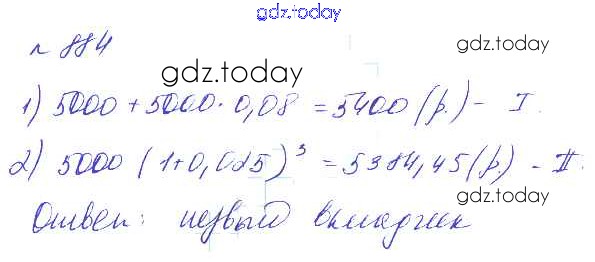 gdz.today
№ 884
gdz.today
1) 5000 + 5000 · 0,08 = 5400 (р.) - I.
2) 5000 (1+0,025)³ = 5384,45 (р.) - II.
gdz.today
Ответ: первый вкладчик